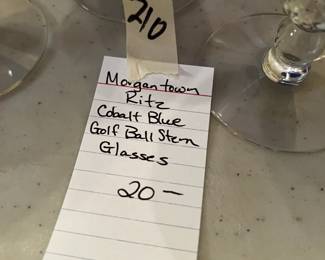 210
Morgantown
Ritz
Cobalt Blue
Golf Ball Stem
Glasses
20 —